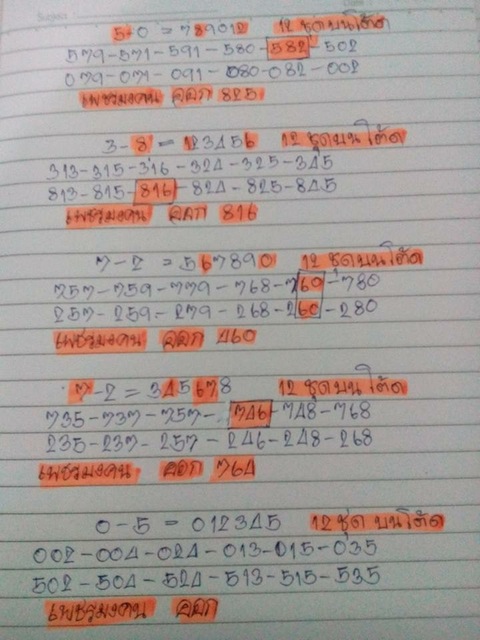 5-0 = 789012 12 ชุด บนโต๊ด
579-571-591-580-582-502
079-071-091-080-082-002
เพชรมงคน ออก 825
3-8 = 123456 12 ชุด บนโต๊ด
313-315-316-324-325-345
813-815-816-824-825-845
เพชรมงคน ออก 816
7-2 = 567890 12 ชุด บนโต๊ด
757-759-779-768-760-780
257-259-279-268-260-280
เพชรมงคน ออก 460
7-2 = 345678 12 ชุด บนโต๊ด
735-737-757-746-748-768
235-237-257-246-248-268
เพชรมงคน ออก 764
0-5 = 012345 12 ชุด บนโต๊ด
002-004-024-013-015-035
502-504-524-513-515-535
เพชรมงคน ออก